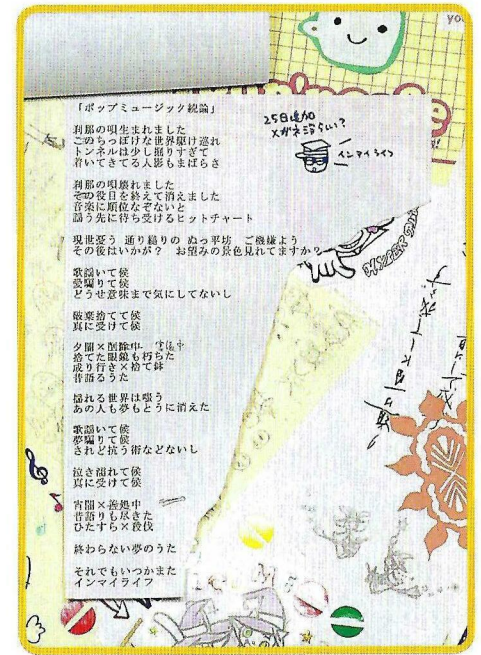 「ポップミュージック続論」
刹那の唄生まれました
このちっぽけな世界駆け巡れ
トンネルは少し掘りすぎて
着いてきてる人影もまばらさ
刹那の唄廃れました
その役目を終えて消えました
音楽に順位なぞないと
謡う先に待ち受けるヒットチャート
現世憂う 通り縋りの ぬっ平坊 ご機嫌よう
その後はいかが? お望みの景色見れてますか?
歌謡いて候
愛騙りて候
どうせ意味まで気にしてないし
破棄捨てて候
真に受けて候
夕闇×削除中
捨てた眼鏡も朽ちた
成り行き×捨て鉢
昔語るうた
揺れる世界は嗤う
あの人も夢もとうに消えた
歌謡いて候
夢騙りて候
されど抗う術などないし
泣き濡れて候
真に受けて候
宵闇×善処中
昔語りも尽きた
ひたすら×殺伐
終わらない夢のうた
それでもいつかまた
インマイライフ
25日追加
メガネ
インマイライフ